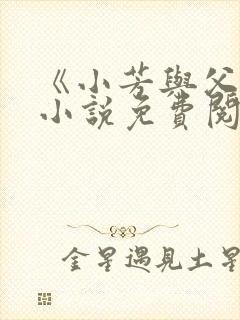 《小芳與父
小說免費閱
金星遇見土星